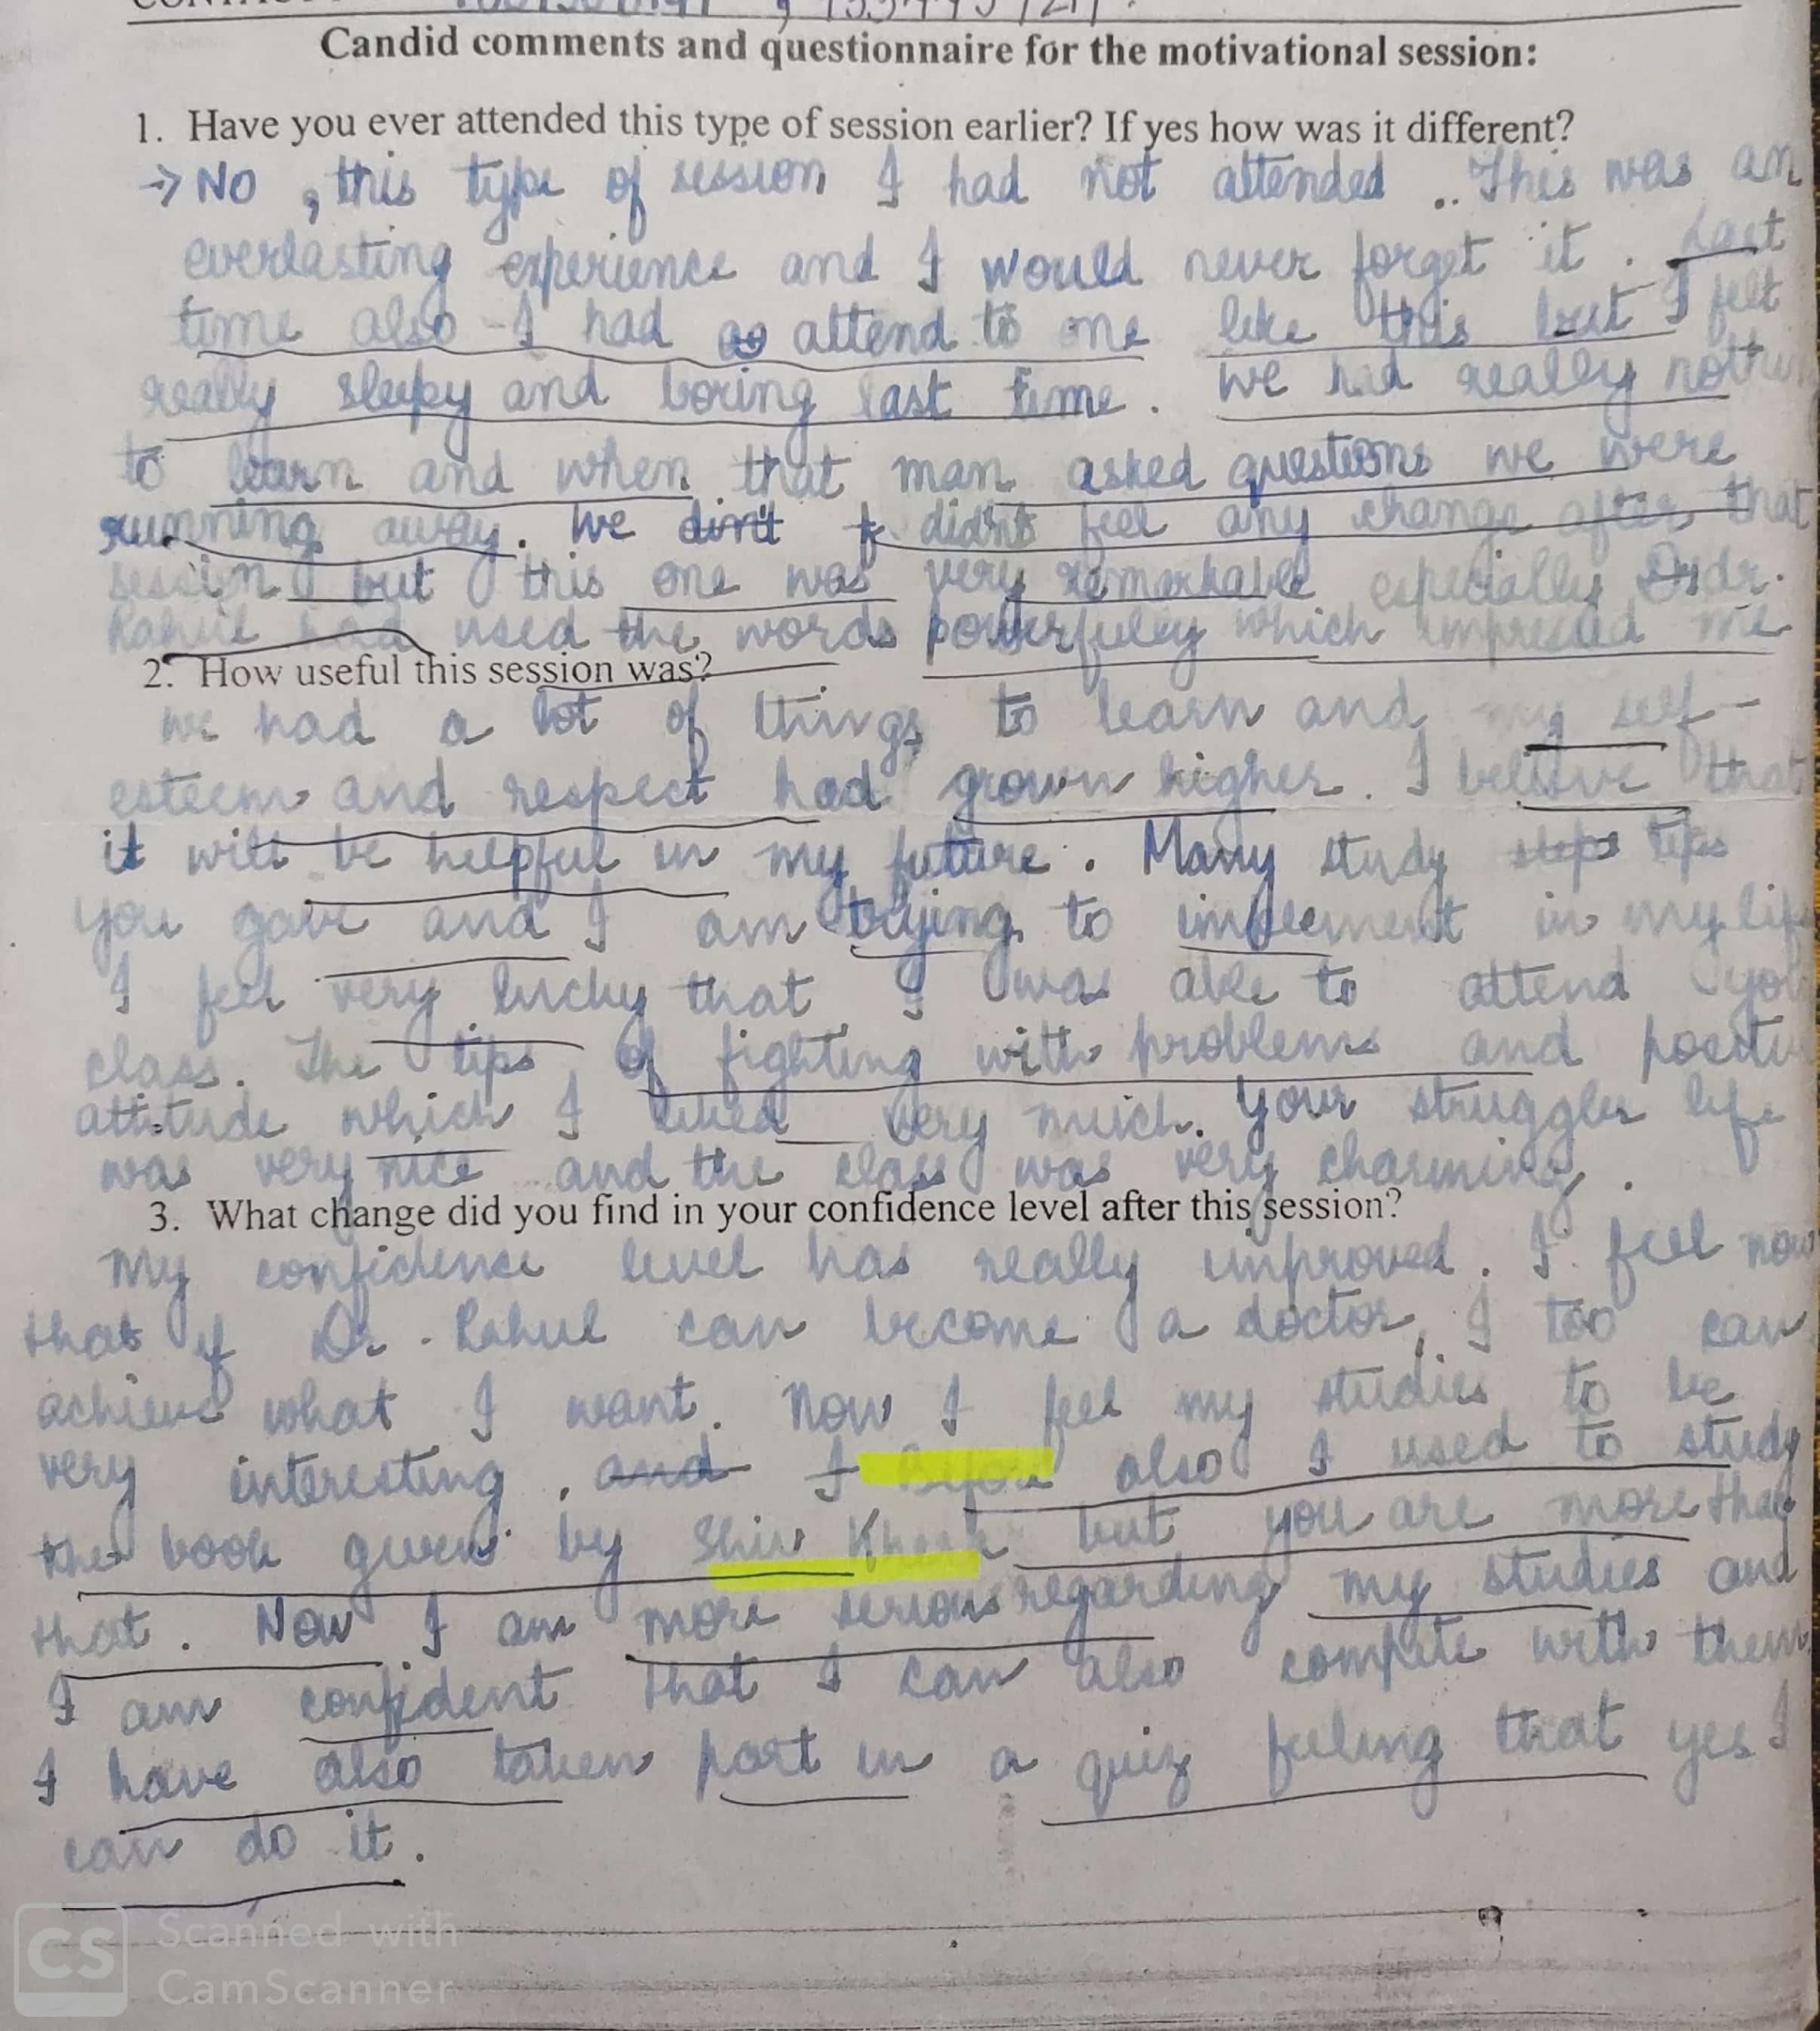 Candid comments and questionnaire for the motivational session:
1. Have you ever attended this type of session earlier? If yes how was it different?
→ No, this type of session I had not attended .. This was an
everlasting experience and I would never forget it. Last
time also I had attend to one like this but I felt
really sleepy and boring last time. We had really
to learn and when that man asked questions we were
running away. We din't didn't feel any change after that
session but this one was very remarkable especially dr.
Rahul had used the words powerfully which impressed me
2. How useful this session was?
We had a lot of things to learn and my self-
esteem and respect had grown higher. I believe that
it will be helpful in my future. Many study steps tips
you gave and I am trying to implement in my
I feel very lucky that I was able to attend
class. The tips of fighting with problems and
attitude which I liked very much. Your struggles life
was very nice and the class was very charming.
3. What change did you find in your confidence level after this session?
My confidence level has really improved. I feel now
that if Dr. Rahul can become a doctor, I too can
achieve what I want. Now I feel my studies to be
very interesting. and I Before also I used to study
the book given by Shiv Khera but you are more than
that. Now I am more serious regarding my studies and
I am confident that I can also compete with them
I have also taken part in a quiz feeling that yes I
can do it.
CS Scanned with
CamScanner